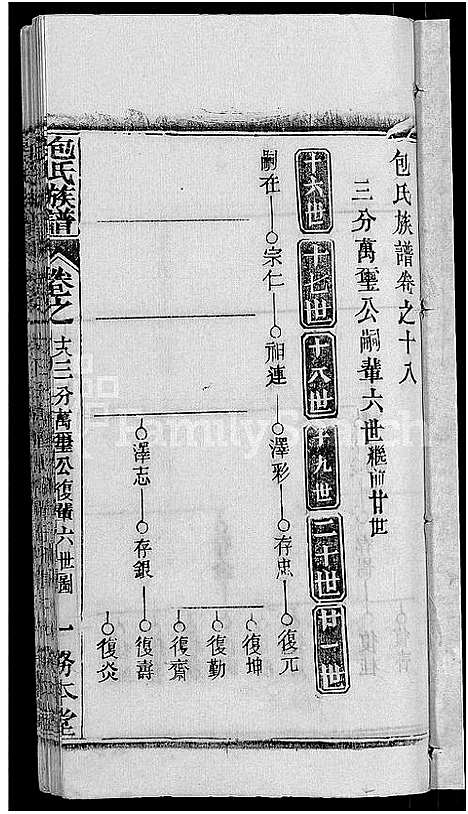 包氏族譜卷之十八
三分萬璽公嗣輩六世繼前廿世
十六世 十七世 十八世 十九世 二十世 廿一世
嗣在 宗仁 湘連 澤彩 存忠 復元
復坤
復勤
復齋
澤志 存銀 復壽
復炎
包氏族譜 卷之 十八 三分萬璽公復輩六世圖 一 務本堂
FamilySearch